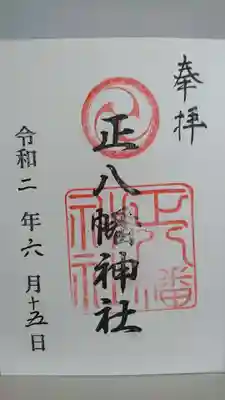 奉拝
正八幡神社
令和二年六月十五日
正八幡
神社